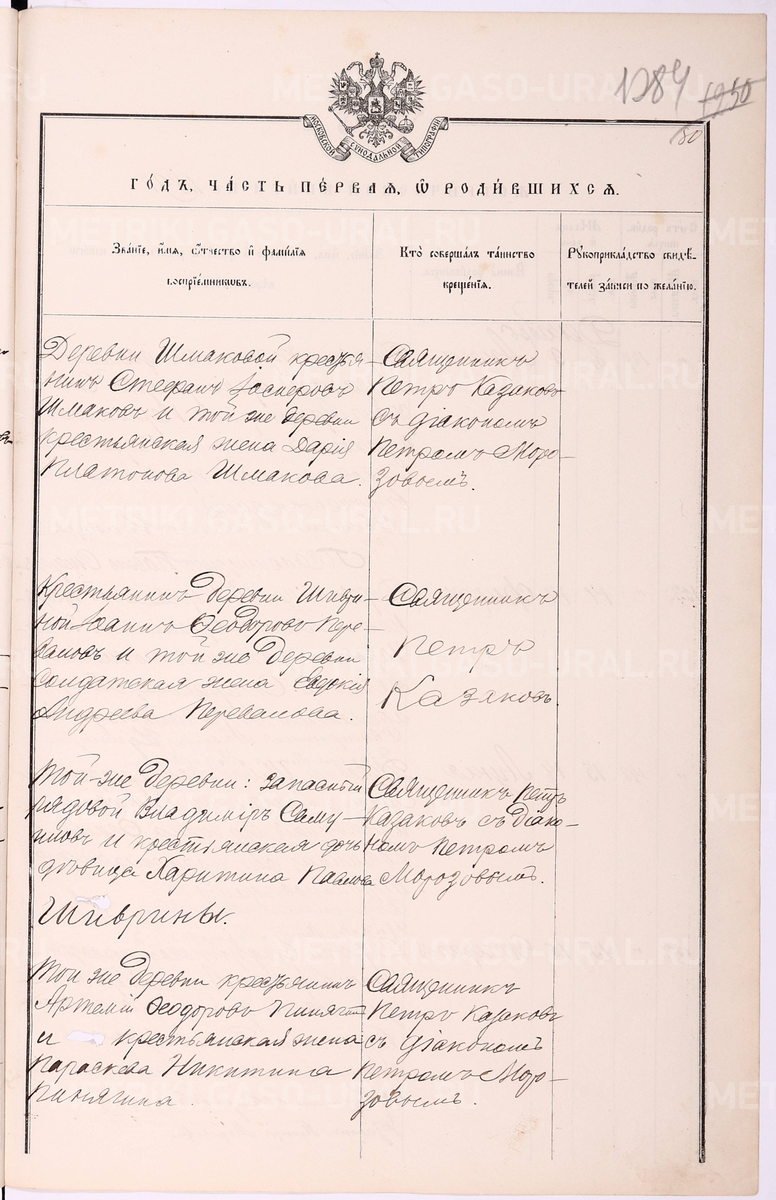 1284 1950
50
МОСКОВСКОЙ СИНОДАЛЬНОЙ ТИПОГРАФІИ
ГОДЪ, ЧАСТЬ ПЕРВАЯ, Ѡ РОДИВШИХСЯ.
Званіе, имя, отчество и фамилія воспріемниковъ.
Кто совершалъ таинство крещенія.
Рукоприкладство свидѣтелей записи по желанію.
Деревни Шмаковой крестья-
нинъ Стефанъ Шмаковъ и той же деревни
крестьянская жена Дарія
Платонова Шмакова.
Священникъ
Петръ Казаковъ
съ діакономъ
Петромъ Моро-
зовымъ.
Крестьянинъ деревни
Іоаннъ Ѳеодоровъ Пере-
валовъ и той же деревни
солдатская жена Евдокія
Андреева Перевалова.
Священникъ
Петръ
Казаковъ.
Той-же деревни: запасный
рядовой Владиміръ Саму-
иловъ и крестьянская дочь
дѣвица Харитина Павлова
Шиврины.
Священникъ Петръ
Казаковъ съ діако-
номъ Петромъ
Морозовымъ.
Той же деревни крестьянинъ
Артемій Ѳеодоровъ
и крестьянская жена
Параскева Никитина
Пинягина.
Священникъ
Петръ Казаковъ
съ діакономъ
Петромъ Моро-
зовымъ.
METRIKI.GASO-URAL.RU